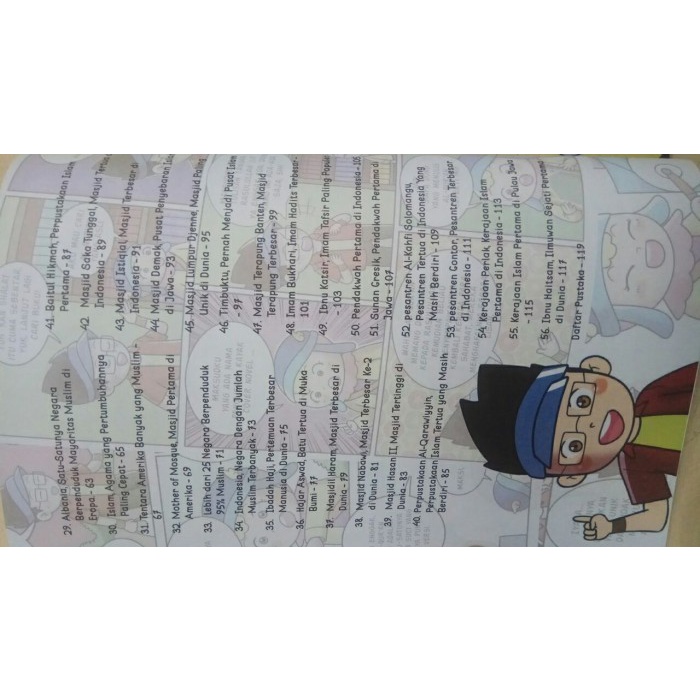 29. Albania, Satu-Satunya Negara
Berpenduduk Mayoritas Muslim di
Eropa - 63
30. Islam, Agama yang Pertumbuhannya
Paling Cepat - 65
31. Tentara Amerika Banyak yang Muslim -
67
32. Mother of Mosque, Masjid Pertama di
Amerika - 69
33. Lebih dari 25 Negara Berpenduduk
95% Muslim - 71
34. Indonesia, Negara Dengan Jumlah
Muslim Terbanyak - 73
35. Ibadah Haji, Pertemuan Terbesar
Manusia di Dunia - 75
36. Hajar Aswad, Batu Tertua di Muka
Bumi - 77
37. Masjidil Haram, Masjid Terbesar di
Dunia - 79
38. Masjid Nabawi, Masjid Terbesar Ke-2
di Dunia - 81
39. Masjid Hasan II, Masjid Tertinggi di
Dunia - 83
40. Perpustakaan Al-Qarawiyyin,
Perpustakaan Islam Tertua yang Masih
Berdiri - 85
41. Baitul Hikmah, Perpustakaan Islam
Pertama - 87
42. Masjid Saka Tunggal, Masjid Tertua
Indonesia - 89
43. Masjid Istiqlal, Masjid Terbesar di
Indonesia - 91
44. Masjid Demak, Pusat Penyebaran
di Jawa - 93
45. Masjid Lumpur Djenne, Masjid Paling
Unik di Dunia - 95
46. Timbuktu, Pernah Menjadi Pusat Islam
- 97
47. Masjid Terapung Banten, Masjid
Terapung Terbesar - 99
48. Imam Bukhari, Imam Hadits Terbesar -
101
49. Ibnu Katsir, Imam Tafsir Paling
- 103
50. Pendakwah Pertama di Indonesia - 105
51. Sunan Gresik, Pendakwah Pertama di
Jawa - 107
52. pesantren Al-Kahfi Somalangu,
Pesantren Tertua di Indonesia Yang
Masih Berdiri - 109
53. pesantren Gontor, Pesantren Terbesar
di Indonesia - 111
54. Kerajaan Perlak, Kerajaan Islam
Pertama di Indonesia - 113
55. Kerajaan Islam Pertama di Pulau Jawa
- 115
56. Ibnu Haitsam, Ilmuwan Sejati Pertama
di Dunia - 117
Daftar Pustaka - 119